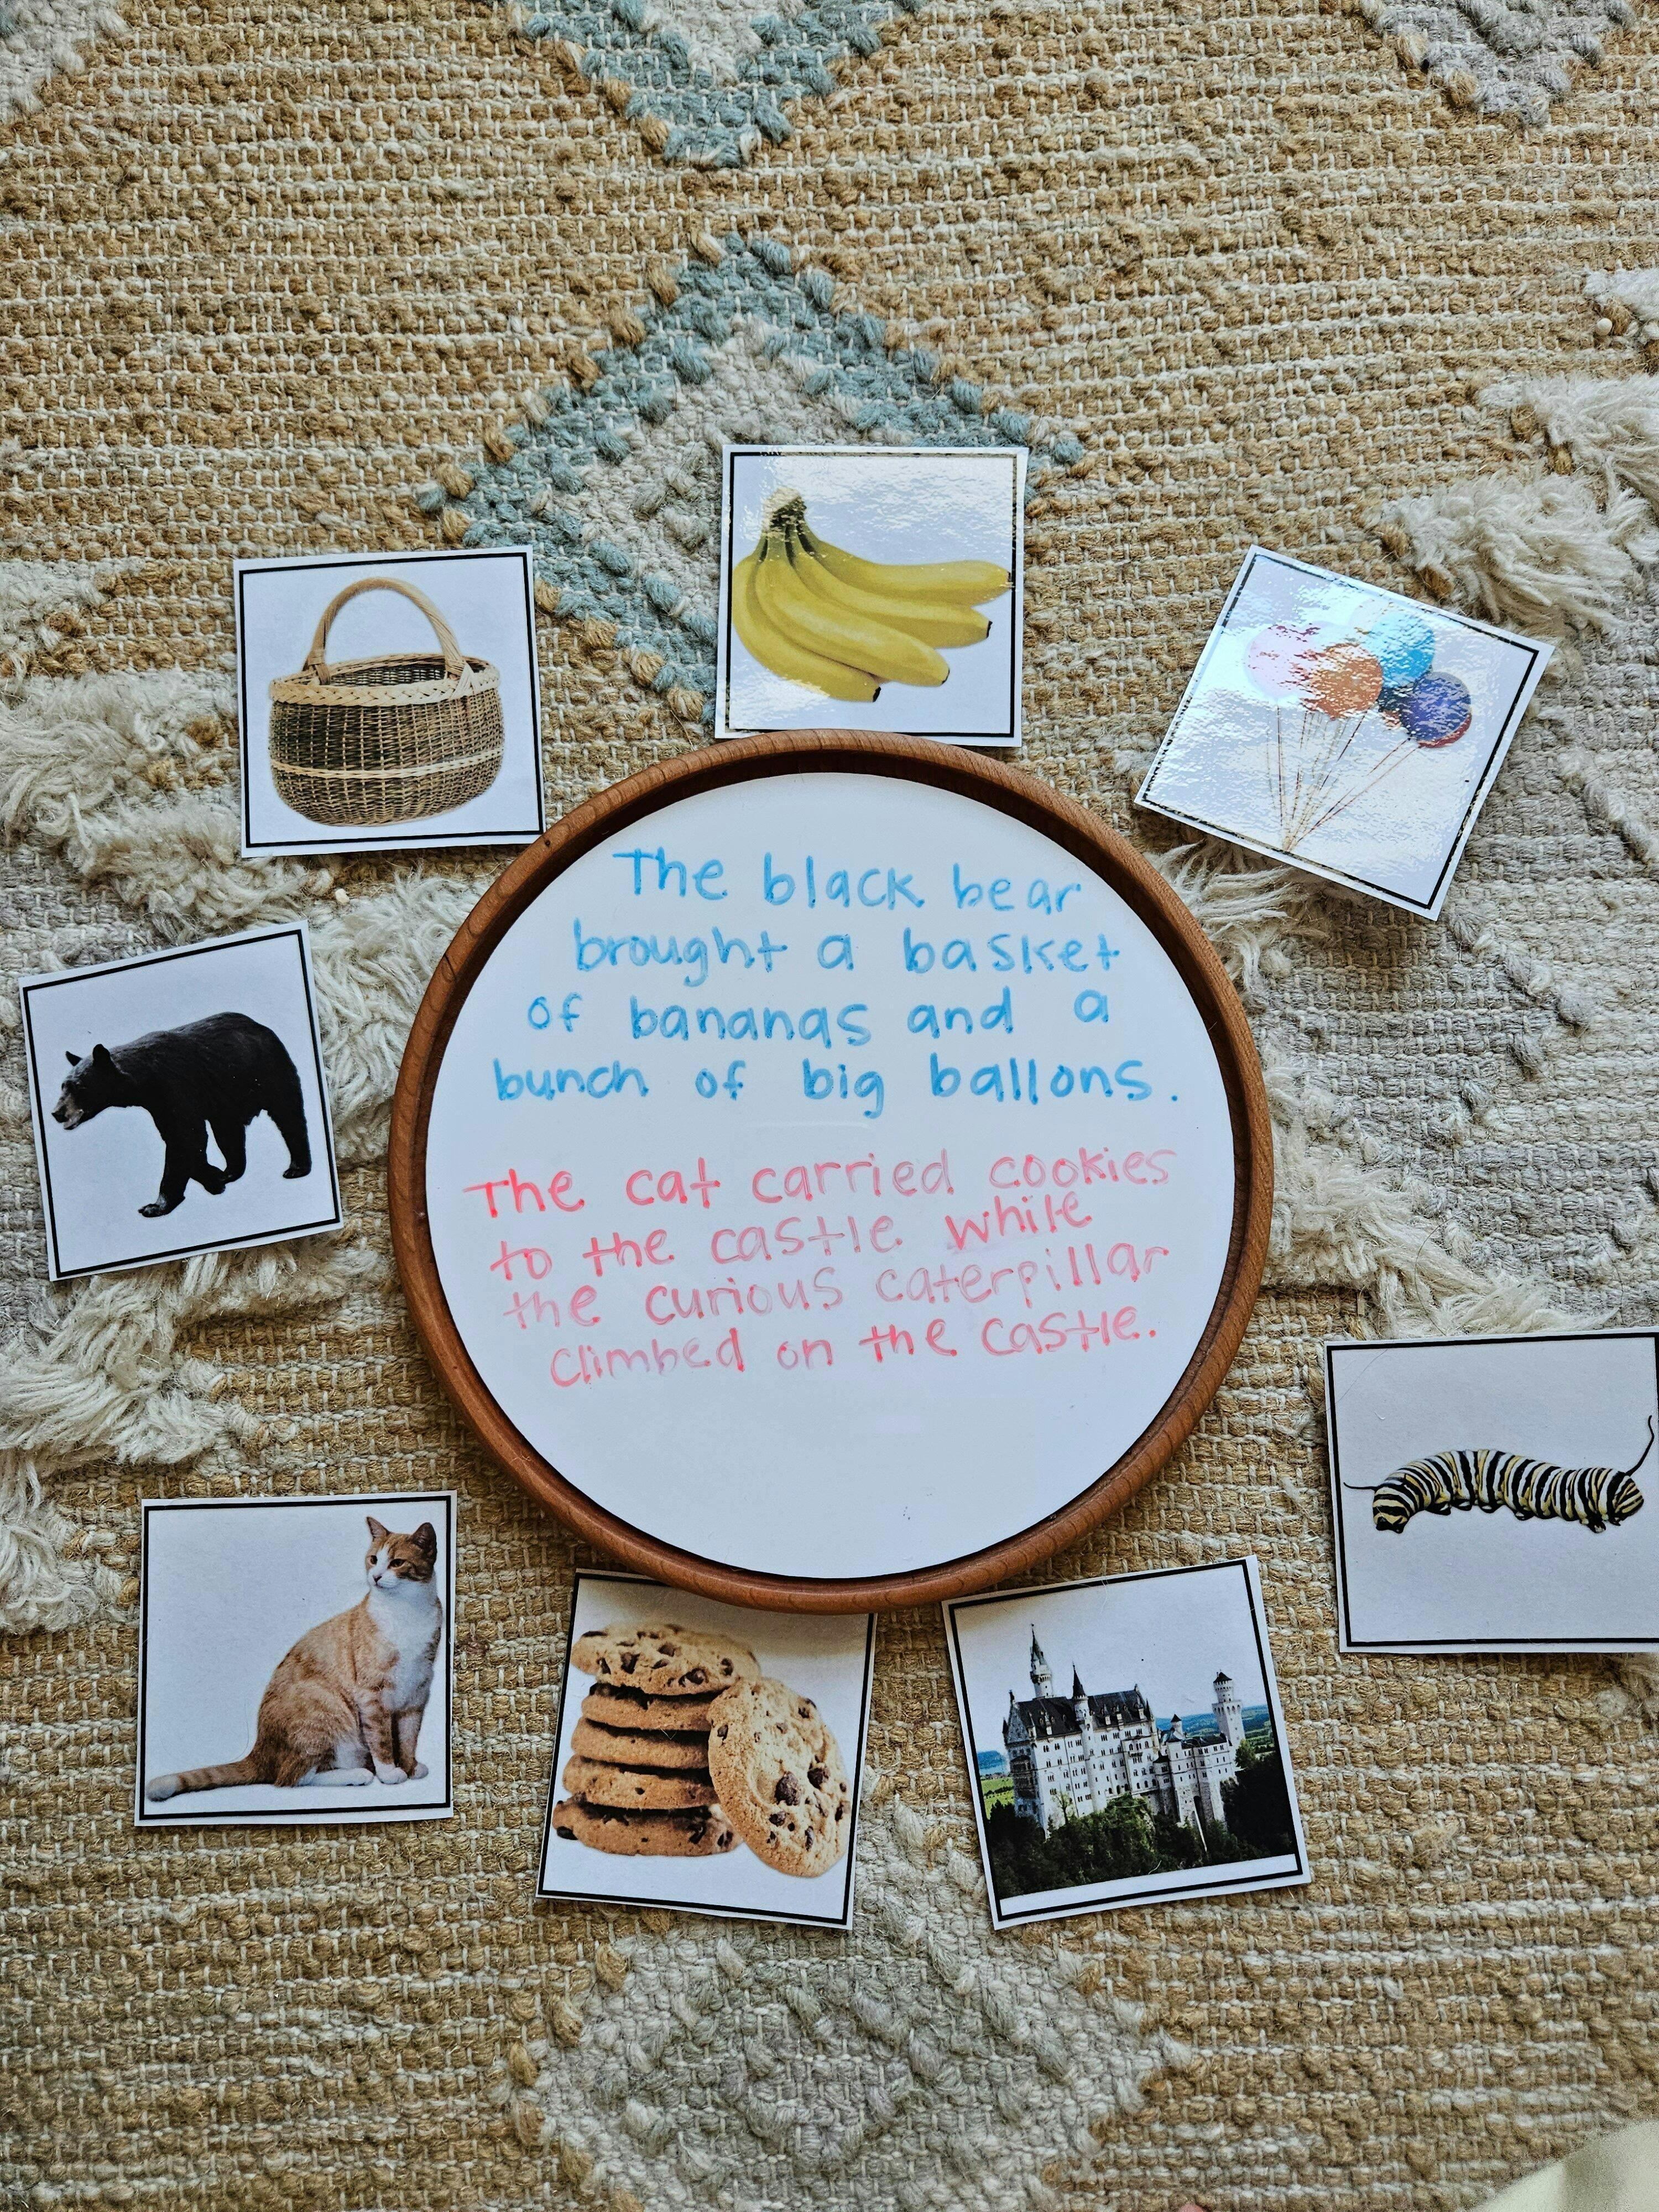 The black bear
brought a basket
of bananas and a
bunch of big ballons.
The cat carried cookies
to the castle while
the curious caterpillar
climbed on the castle.